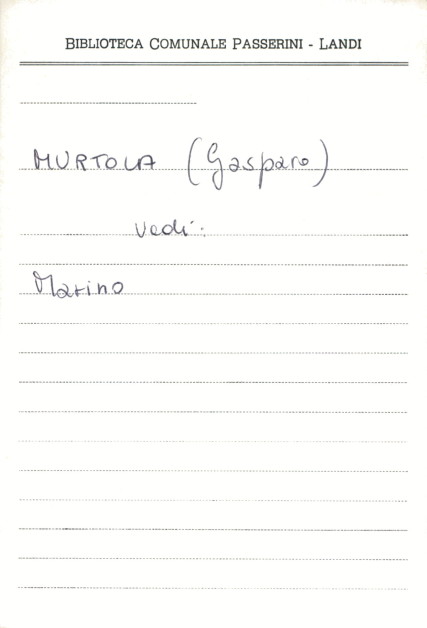 BIBLIOTECA COMUNALE PASSERINI - LANDI
MURTOLA (Gasparo)
Vedi:
Marino